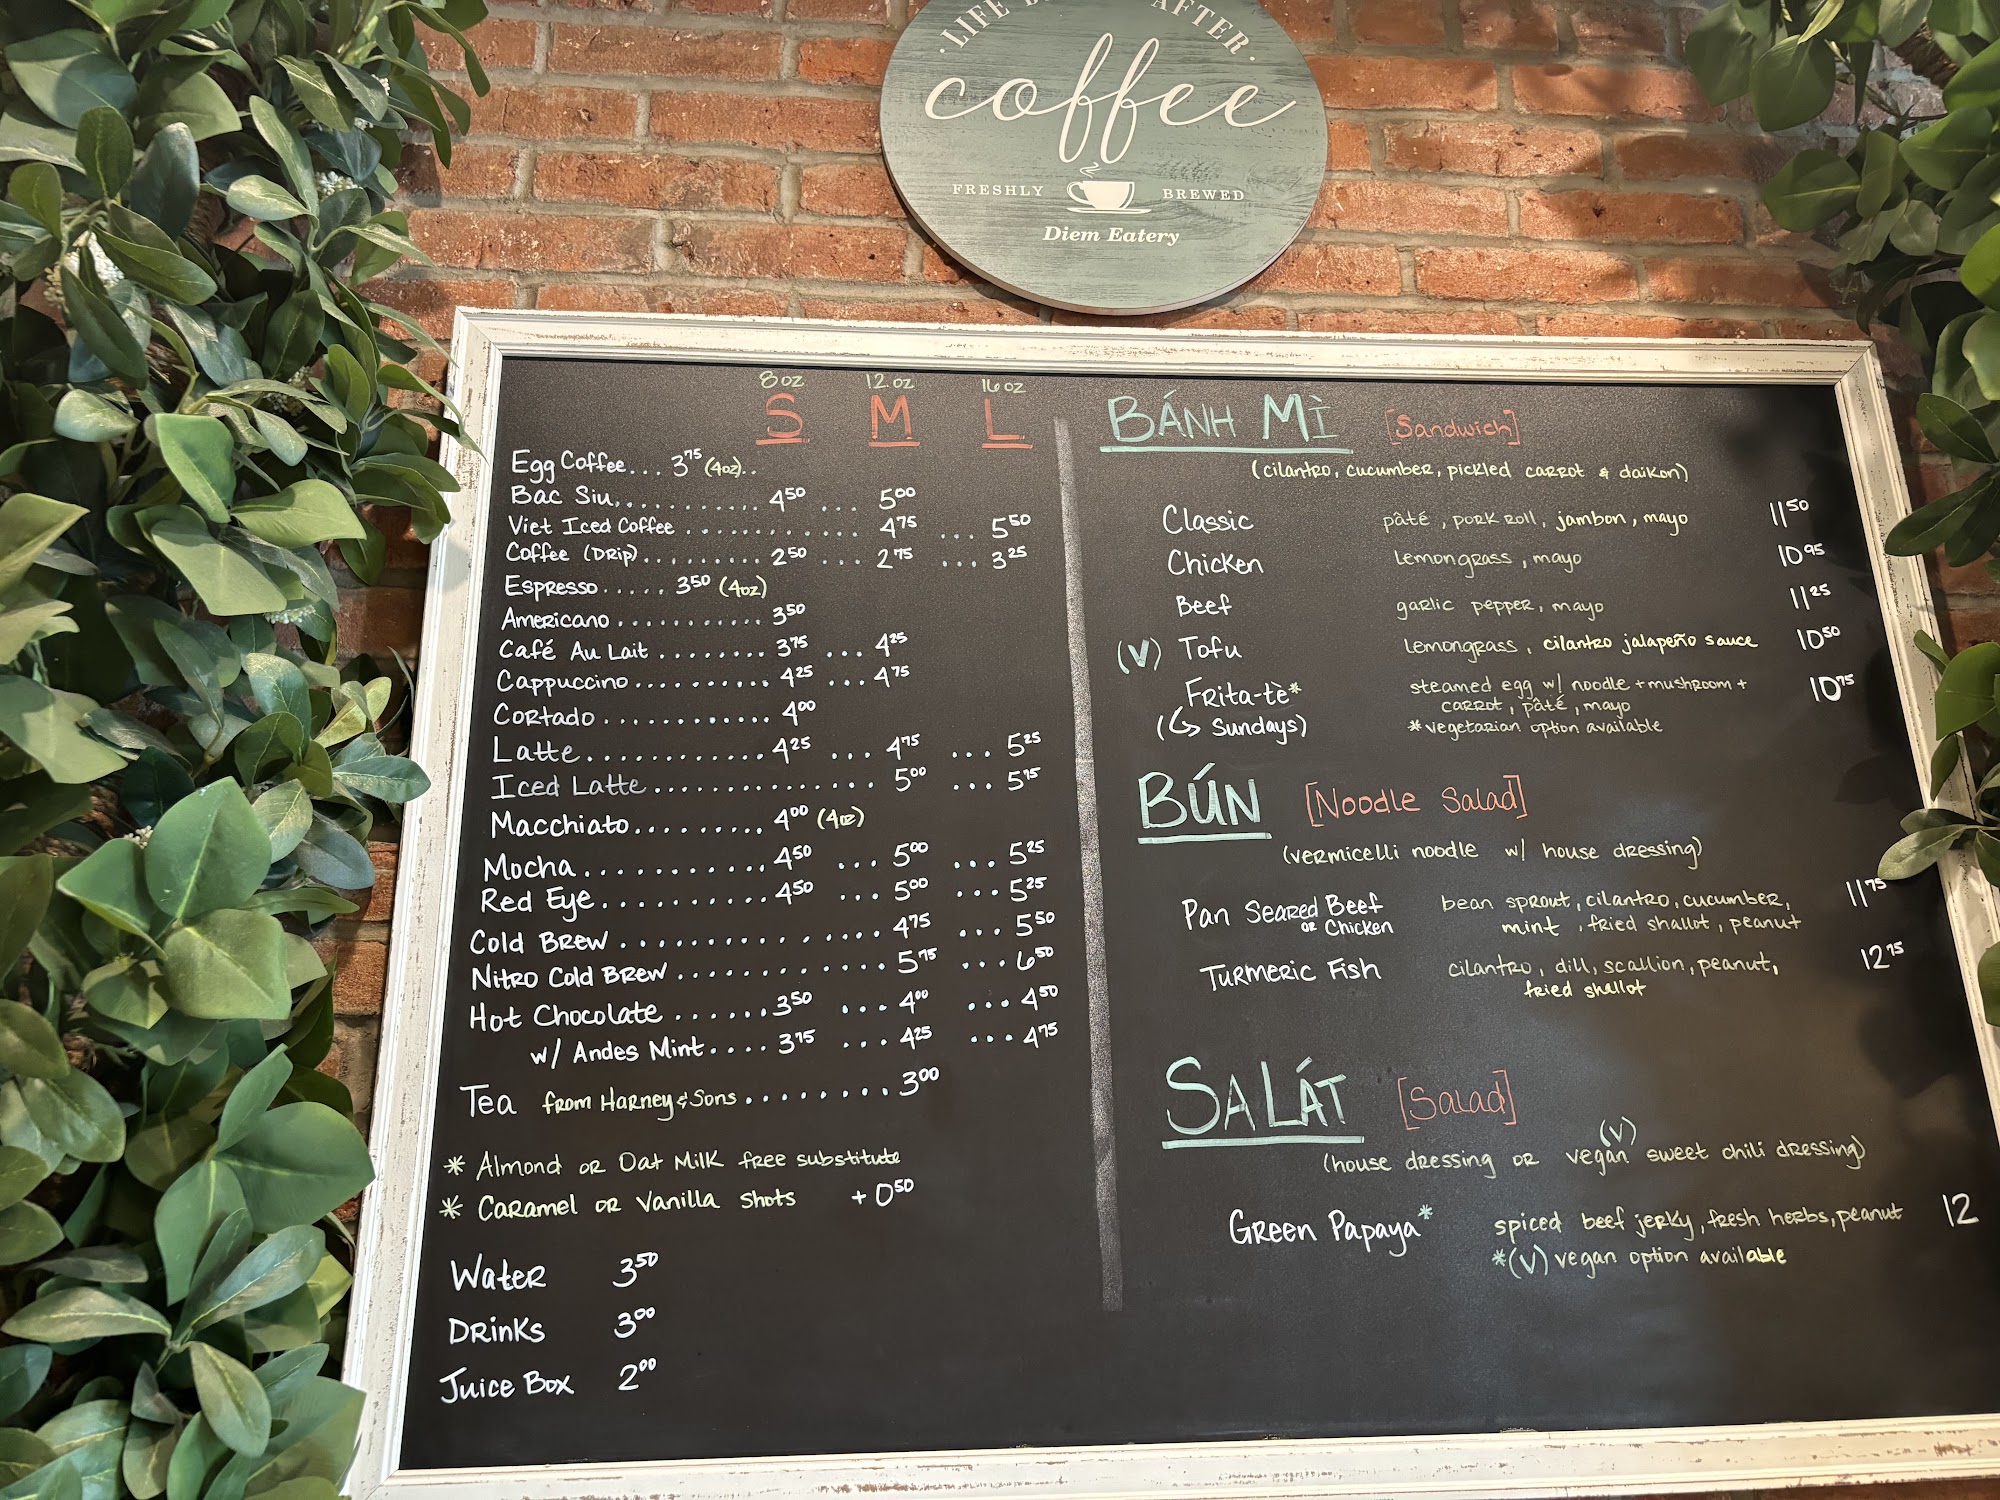 LIFE AFTER
coffee
FRESHLY BREWED
Diem Eatery
8oz 12oz 16oz
S M L
Egg Coffee... 3⁷⁵ (4oz)..
Bac Siu.......... 4⁵⁰ ... 5⁰⁰
Viet Iced Coffee ............. 4⁷⁵ ... 5⁵⁰
Coffee (Drip)......... 2⁵⁰ ... 2⁷⁵ ... 3²⁵
Espresso..... 3⁵⁰ (4oz)
Americano........... 3⁵⁰
Café Au Lait ........ 3⁷⁵ ... 4²⁵
Cappuccino.......... 4²⁵ ... 4⁷⁵
Cortado............ 4⁰⁰
Latte............ 4²⁵ ... 4⁷⁵ ... 5²⁵
Iced Latte................ 5⁰⁰ ... 5⁷⁵
Macchiato......... 4⁰⁰ (4oz)
Mocha............ 4⁵⁰ ... 5⁰⁰ ... 5²⁵
Red Eye.......... 4⁵⁰ ... 5⁰⁰ ... 5²⁵
Cold Brew ............... 4⁷⁵ ... 5⁵⁰
Nitro Cold Brew............ 5⁷⁵ ... 6⁵⁰
Hot Chocolate ...... 3⁵⁰ ... 4⁰⁰ ... 4⁵⁰
w/ Andes Mint.... 3⁷⁵ ... 4²⁵ ... 4⁷⁵
Tea from Harney & Sons........ 3⁰⁰
* Almond or Oat Milk free substitute
* Caramel or Vanilla shots + 0⁵⁰
Water 3⁵⁰
Drinks 3⁰⁰
Juice Box 2⁰⁰
BÁNH MÌ [Sandwich]
(cilantro, cucumber, pickled carrot & daikon)
Classic pâté, pork roll, jambon, mayo 11⁵⁰
Chicken lemongrass, mayo 10⁹⁵
Beef garlic pepper, mayo 11²⁵
(V) Tofu lemongrass, cilantro jalapeño sauce 10⁵⁰
Frita-tè* steamed egg w/ noodle + mushroom + 10⁷⁵
carrot, pâté, mayo
(↳ Sundays) *vegetarian option available
BÚN [Noodle Salad]
(vermicelli noodle w/ house dressing)
Pan Seared Beef bean sprout, cilantro, cucumber, 11⁷⁵
or Chicken mint, fried shallot, peanut
Turmeric Fish cilantro, dill, scallion, peanut, 12⁷⁵
fried shallot
SALÁT [Salad]
(V)
(house dressing or vegan sweet chili dressing)
Green Papaya* spiced beef jerky, fresh herbs, peanut 12
*(V) vegan option available